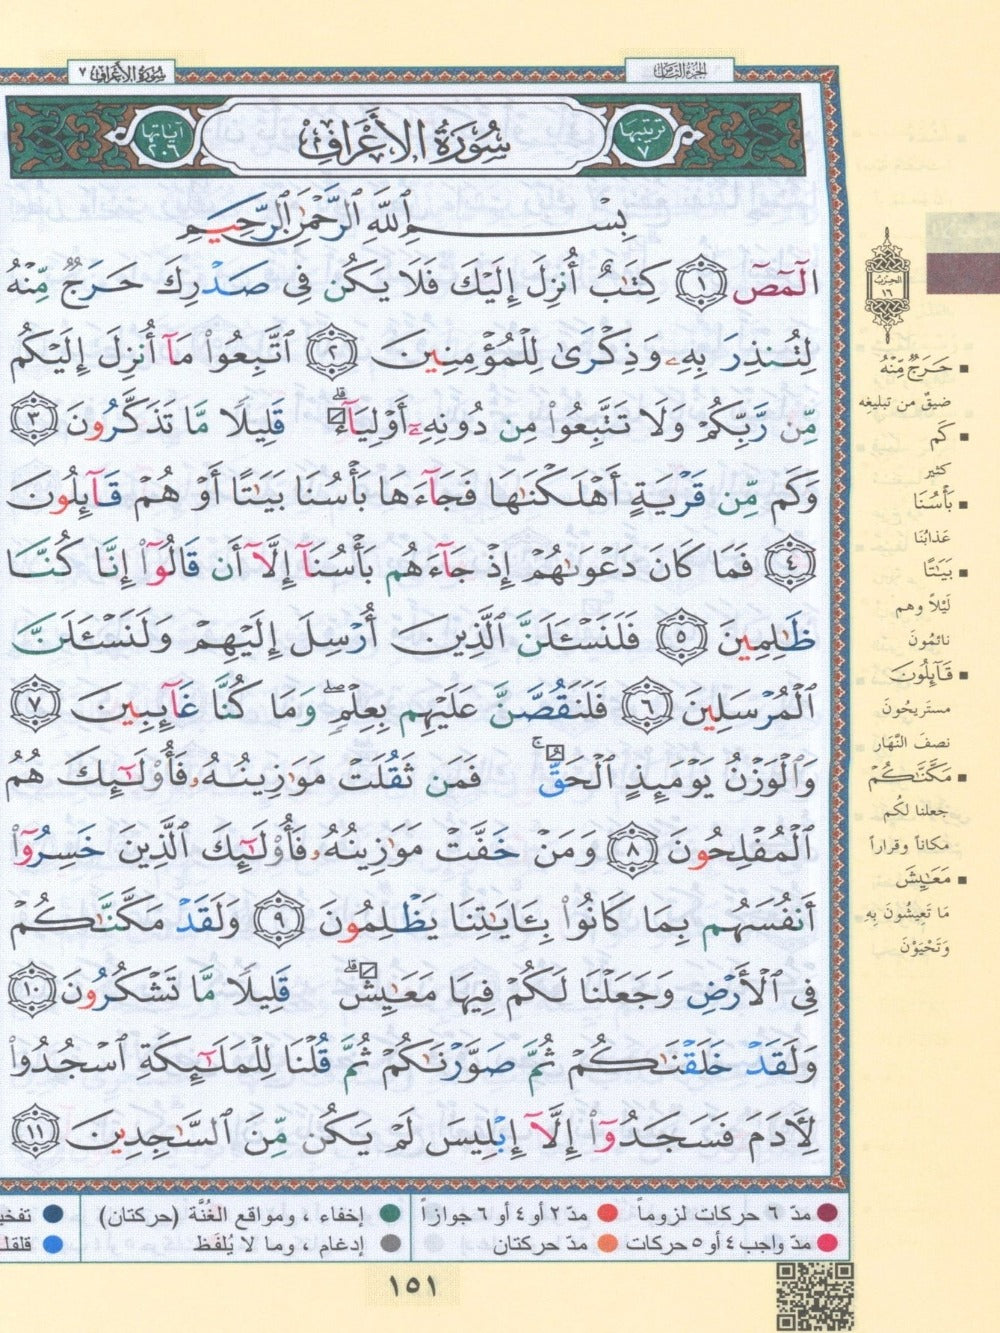 الجزء الثامن
سُورَةُ الأَعْرَافِ ٧
ترتيبها ٧
سُورَةُ الأَعْرَافِ
آياتها ٢٠٦
بِسْمِ ٱللَّهِ ٱلرَّحْمَٰنِ ٱلرَّحِيمِ
الٓمٓصٓ ١ كِتَٰبٌ أُنزِلَ إِلَيْكَ فَلَا يَكُن فِى صَدْرِكَ حَرَجٌ مِّنْهُ
لِتُنذِرَ بِهِۦ وَذِكْرَىٰ لِلْمُؤْمِنِينَ ٢ ٱتَّبِعُوا۟ مَآ أُنزِلَ إِلَيْكُم
مِّن رَّبِّكُمْ وَلَا تَتَّبِعُوا۟ مِن دُونِهِۦٓ أَوْلِيَآءَ ۗ قَلِيلًا مَّا تَذَكَّرُونَ ٣
وَكَم مِّن قَرْيَةٍ أَهْلَكْنَٰهَا فَجَآءَهَا بَأْسُنَا بَيَٰتًا أَوْ هُمْ قَآئِلُونَ
٤ فَمَا كَانَ دَعْوَىٰهُمْ إِذْ جَآءَهُم بَأْسُنَآ إِلَّآ أَن قَالُوٓا۟ إِنَّا كُنَّا
ظَٰلِمِينَ ٥ فَلَنَسْـَٔلَنَّ ٱلَّذِينَ أُرْسِلَ إِلَيْهِمْ وَلَنَسْـَٔلَنَّ
ٱلْمُرْسَلِينَ ٦ فَلَنَقُصَّنَّ عَلَيْهِم بِعِلْمٍ ۖ وَمَا كُنَّا غَآئِبِينَ ٧
وَٱلْوَزْنُ يَوْمَئِذٍ ٱلْحَقُّ ۚ فَمَن ثَقُلَتْ مَوَٰزِينُهُۥ فَأُو۟لَٰٓئِكَ هُمُ
ٱلْمُفْلِحُونَ ٨ وَمَنْ خَفَّتْ مَوَٰزِينُهُۥ فَأُو۟لَٰٓئِكَ ٱلَّذِينَ خَسِرُوٓا۟
أَنفُسَهُم بِمَا كَانُوا۟ بِـَٔايَٰتِنَا يَظْلِمُونَ ٩ وَلَقَدْ مَكَّنَّٰكُمْ
فِى ٱلْأَرْضِ وَجَعَلْنَا لَكُمْ فِيهَا مَعَٰيِشَ ۗ قَلِيلًا مَّا تَشْكُرُونَ ١٠
وَلَقَدْ خَلَقْنَٰكُمْ ثُمَّ صَوَّرْنَٰكُمْ ثُمَّ قُلْنَا لِلْمَلَٰٓئِكَةِ ٱسْجُدُوا۟
لِـَٔادَمَ فَسَجَدُوٓا۟ إِلَّآ إِبْلِيسَ لَمْ يَكُن مِّنَ ٱلسَّٰجِدِينَ ١١
الحزب ١٦
حَرَجٌ مِّنْهُ
ضيقٌ من تبليغه
كَم
كثير
بَأْسُنَا
عَذابُنَا
بَيَٰتًا
لَيْلاً وهم
نائمُونَ
قَآئِلُونَ
مستريحُونَ
نصفَ النَّهار
مَكَّنَّٰكُمْ
جعلنا لكُم
مكاناً وقراراً
مَعَٰيِشَ
مَا تَعِيشُونَ بِهِ
وَتَحْيَوْنَ
مدّ ٦ حركات لزوماً مدّ ٢ أو ٤ أو ٦ جوازاً إخفاء ، ومواقع الغُنَّة (حركتان)
مدّ واجب ٤ أو ٥ حركات مدّ حركتان إدغام ، وما لا يُلفَظ
١٥١